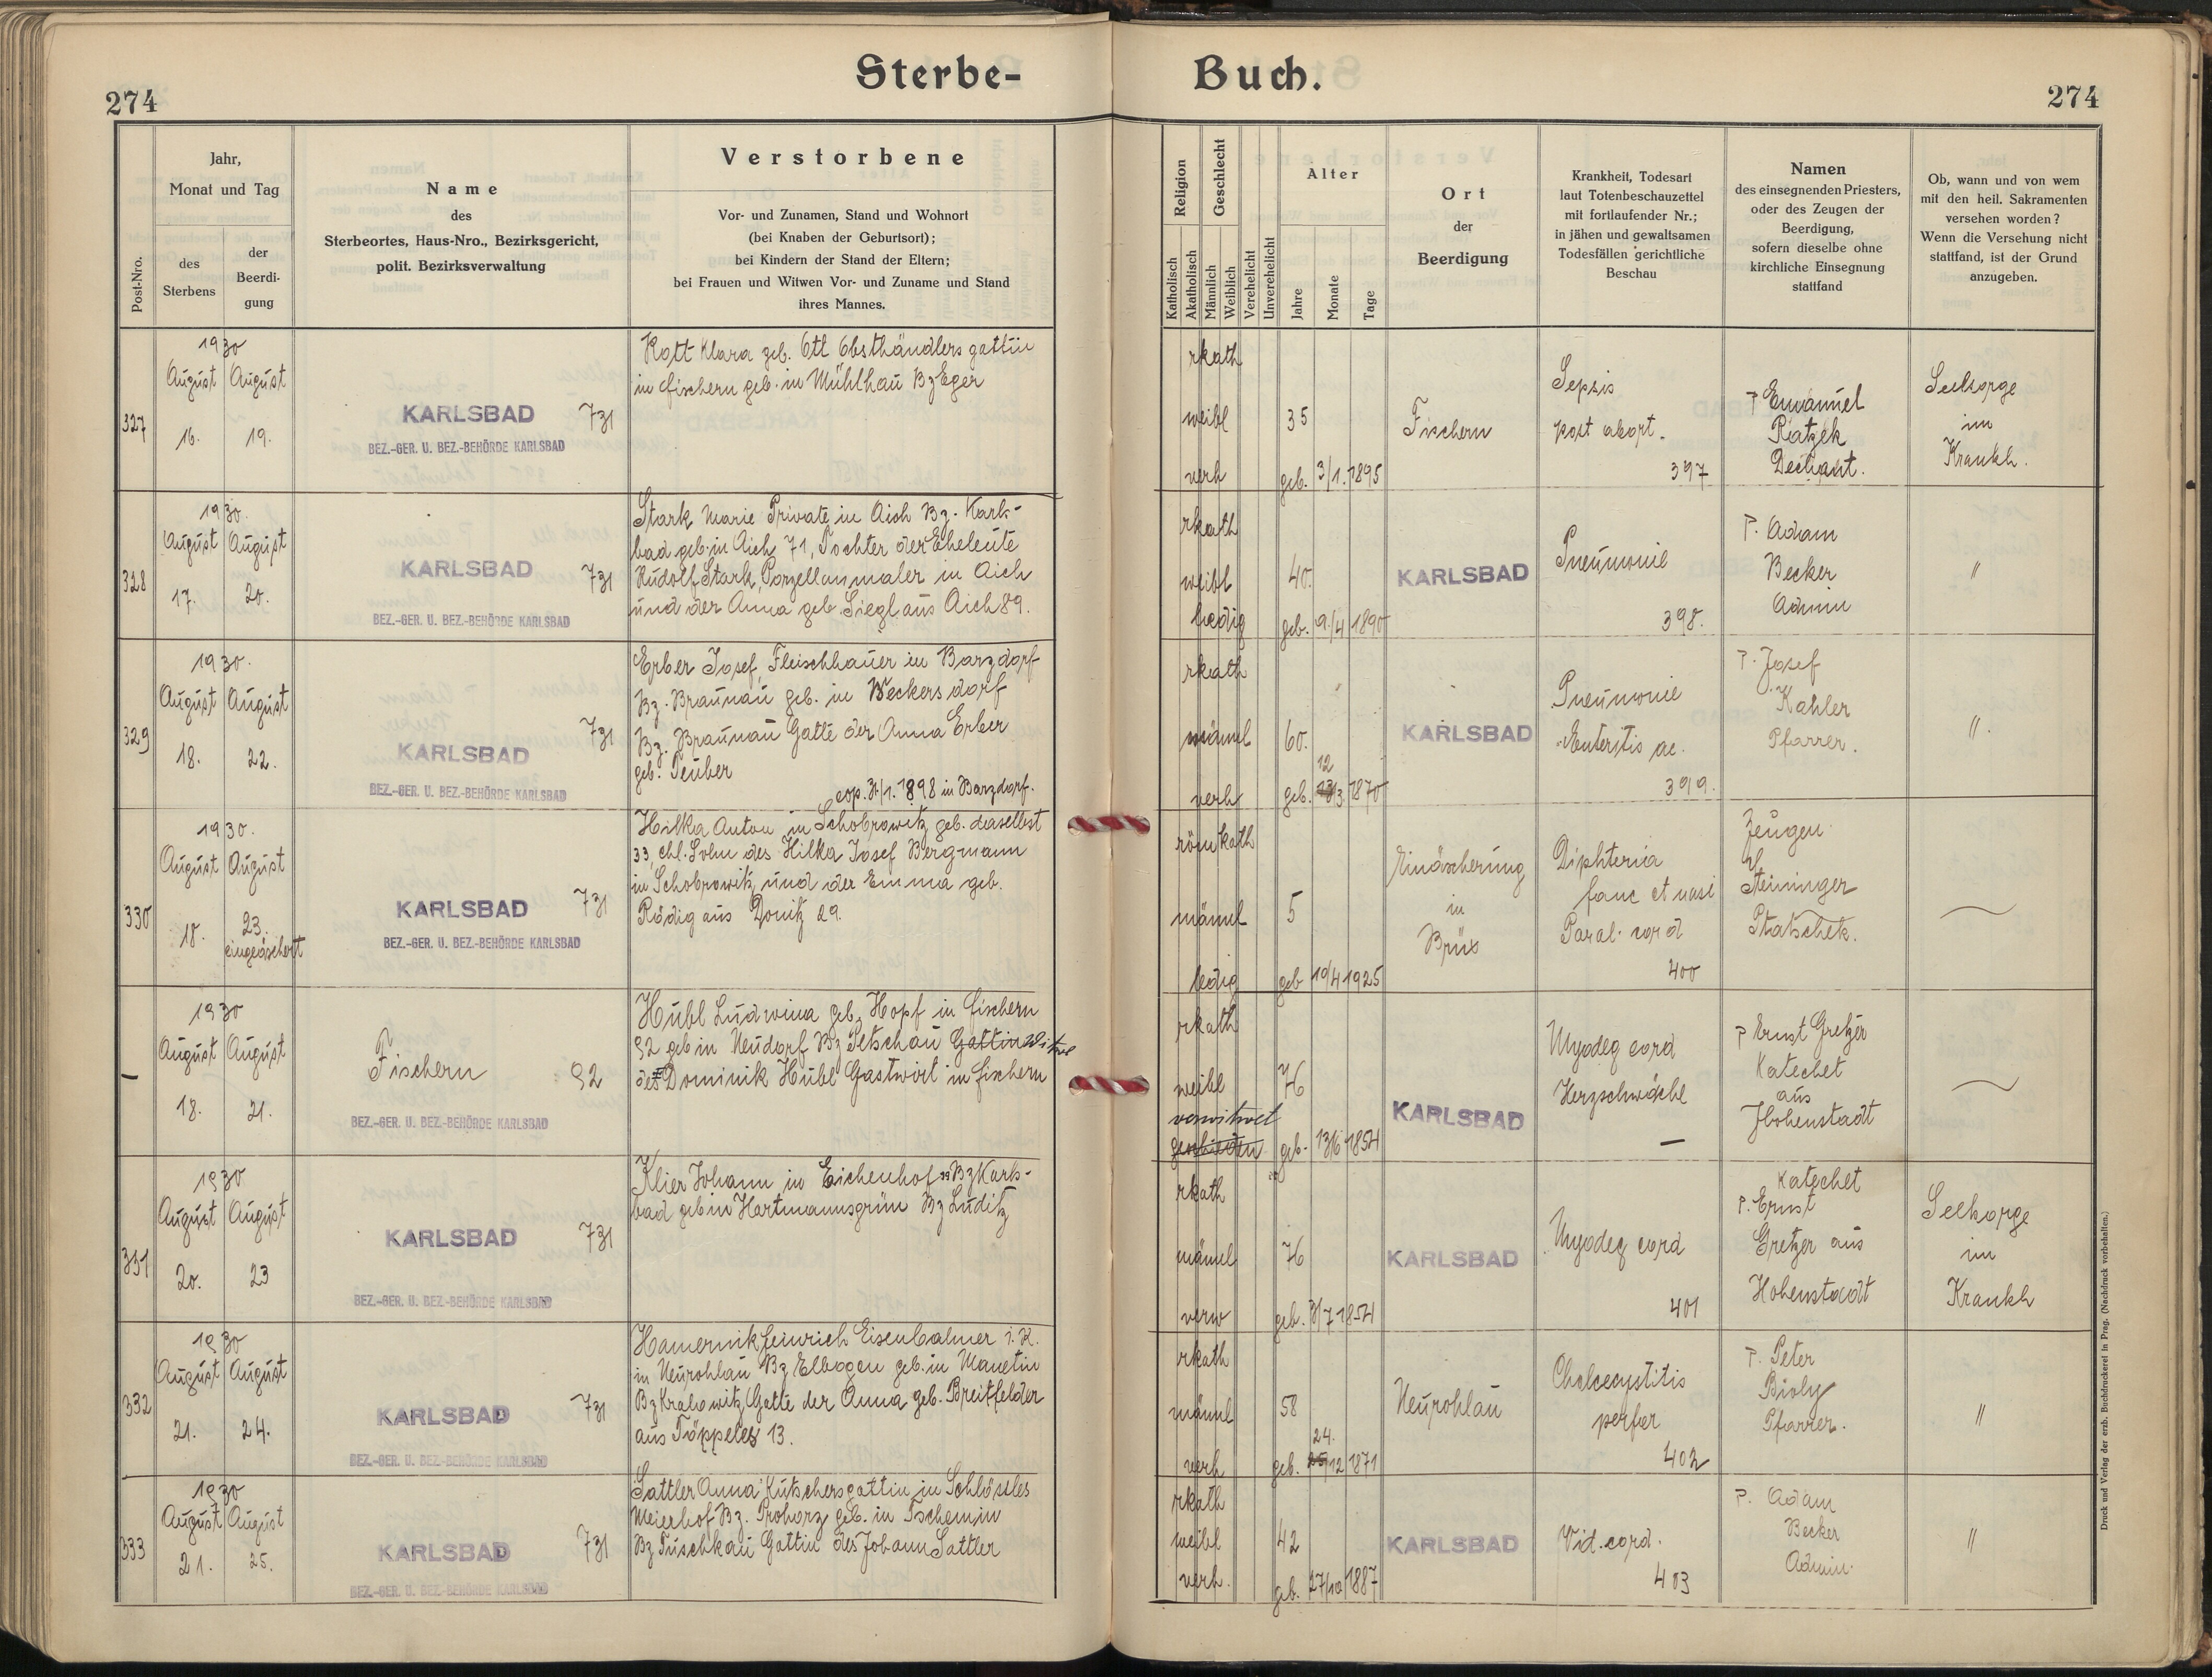 274
Sterbe-
Buch.
274
Post-Nro.
Jahr,
Monat und Tag
des
Sterbens
der
Beerdi-
gung
Name
des
Sterbeortes, Haus-Nro., Bezirksgericht,
polit. Bezirksverwaltung
Verstorbene
Vor- und Zunamen, Stand und Wohnort
(bei Knaben der Geburtsort);
bei Kindern der Stand der Eltern;
bei Frauen und Witwen Vor- und Zuname und Stand
ihres Mannes.
Religion
Katholisch
Akatholisch
Geschlecht
Männlich
Weiblich
Verehelicht
Unverehelicht
Alter
Jahre
Monate
Tage
Ort
der
Beerdigung
Krankheit, Todesart
laut Totenbeschauzettel
mit fortlaufender Nr.;
in jähen und gewaltsamen
Todesfällen gerichtliche
Beschau
Namen
des einsegnenden Priesters,
oder des Zeugen der
Beerdigung,
sofern dieselbe ohne
kirchliche Einsegnung
stattfand
Ob, wann und von wem
mit den heil. Sakramenten
versehen worden?
Wenn die Versehung nicht
stattfand, ist der Grund
anzugeben.
327
1930
August August
16. 19.
KARLSBAD 731
BEZ.-GER. U. BEZ.-BEHÖRDE KARLSBAD
Rott Klara geb. Ott Obsthändlersgattin
in Fischern geb. in Mühlhau Bz Eger
rkath
weibl 35
verh geb. 3/1. 1895
Fischern
Sepsis
post abort.
397
P Emanuel
Ratzek
Dechant.
Seelsorge
im
Krankh.
328
1930.
August August
17. 20.
KARLSBAD 731
BEZ.-GER. U. BEZ.-BEHÖRDE KARLSBAD
Stark Marie Private in Aich Bz. Karls-
bad geb. in Aich 71, Tochter der Eheleute
Rudolf Stark, Porzellanmaler in Aich
und der Anna geb. Siegl aus Aich 89.
rkath
weibl 40.
ledig geb. 9./4 1890
KARLSBAD
Pneumonie
398.
P. Adam
Becker
Admin
"
329
1930.
August August
18. 22.
KARLSBAD 731
BEZ.-GER. U. BEZ.-BEHÖRDE KARLSBAD
Erber Josef, Fleischhauer in Barzdorf
Bz. Braunau geb. in Weckersdorf
Bz. Braunau Gatte der Anna Erber
geb. Teuber
cop. 31/1. 1898 in Barzdorf.
rkath
männl 60.
12
verh geb. 13/3. 1870
KARLSBAD
Pneumonie
Enteritis ac.
399.
P. Josef
Kahler
Pfarrer.
".
330
1930.
August August
18. 23.
eingeäschert
KARLSBAD 731
BEZ.-GER. U. BEZ.-BEHÖRDE KARLSBAD
Hilka Anton in Schobrowitz geb. daselbst
33, ehl. Sohn des Hilka Josef Bergmann
in Schobrowitz und der Emma geb.
Rödig aus Donitz 29.
röm kath
männl 5
ledig geb 10/4 1925
Einäscherung
in
Brüx
Diphteria
fauc et nasi
Paral. cord
400
Zeugen
Steininger
Ptatschek.
1930
August August
18. 21.
Fischern 92
BEZ.-GER. U. BEZ.-BEHÖRDE KARLSBAD
Hubl Ludwina geb. Hopf in Fischern
92 geb in Neudorf Bz Petschau Gattin Witwe
des Dominik Hubl Gastwirt in Fischern
rkath
weibl 76
verwitwet
geschieden geb. 13/6 1854
KARLSBAD
Myodeg cord
Herzschwäche
—
P Ernst Gretzer
Katechet
aus
Hohenstadt
331
1930
August August
20. 23
KARLSBAD 731
BEZ.-GER. U. BEZ.-BEHÖRDE KARLSBAD
Klier Johann in Eichenhof Bz Karls-
bad geb in Hartmannsgrün Bz Luditz
rkath
männl 76
verw geb. 3/7 1854
KARLSBAD
Myodeg cord
401
Katechet
P. Ernst
Gretzer aus
Hohenstadt
Seelsorge
im
Krankh
332
1930
August August
21. 24.
KARLSBAD 731
BEZ.-GER. U. BEZ.-BEHÖRDE KARLSBAD
Hamernik Heinrich Eisenbahner i. R.
in Neurohlau Bz Elbogen geb. in Manetin
Bz Kralowitz, Gatte der Anna geb. Breitfelder
aus Töppeles 13.
rkath
männl 58
24.
verh geb. 25/12 1871
Neurohlau
Cholecystitis
perfor
402
P. Peter
Bioly
Pfarrer.
"
333
1930
August August
21. 25.
KARLSBAD 731
BEZ.-GER. U. BEZ.-BEHÖRDE KARLSBAD
Sattler Anna Kutschersgattin in Schlössles
Meierhof Bz. Prohorz geb. in Tschemin
Bz Tuschkau Gattin des Johann Sattler
rkath
weibl 42
verh. geb. 27/10 1887
KARLSBAD
Vid. cord.
403
P. Adam
Becker
Admin.
"
Druck und Verlag der erzb. Buchdruckerei in Prag. (Nachdruck vorbehalten.)